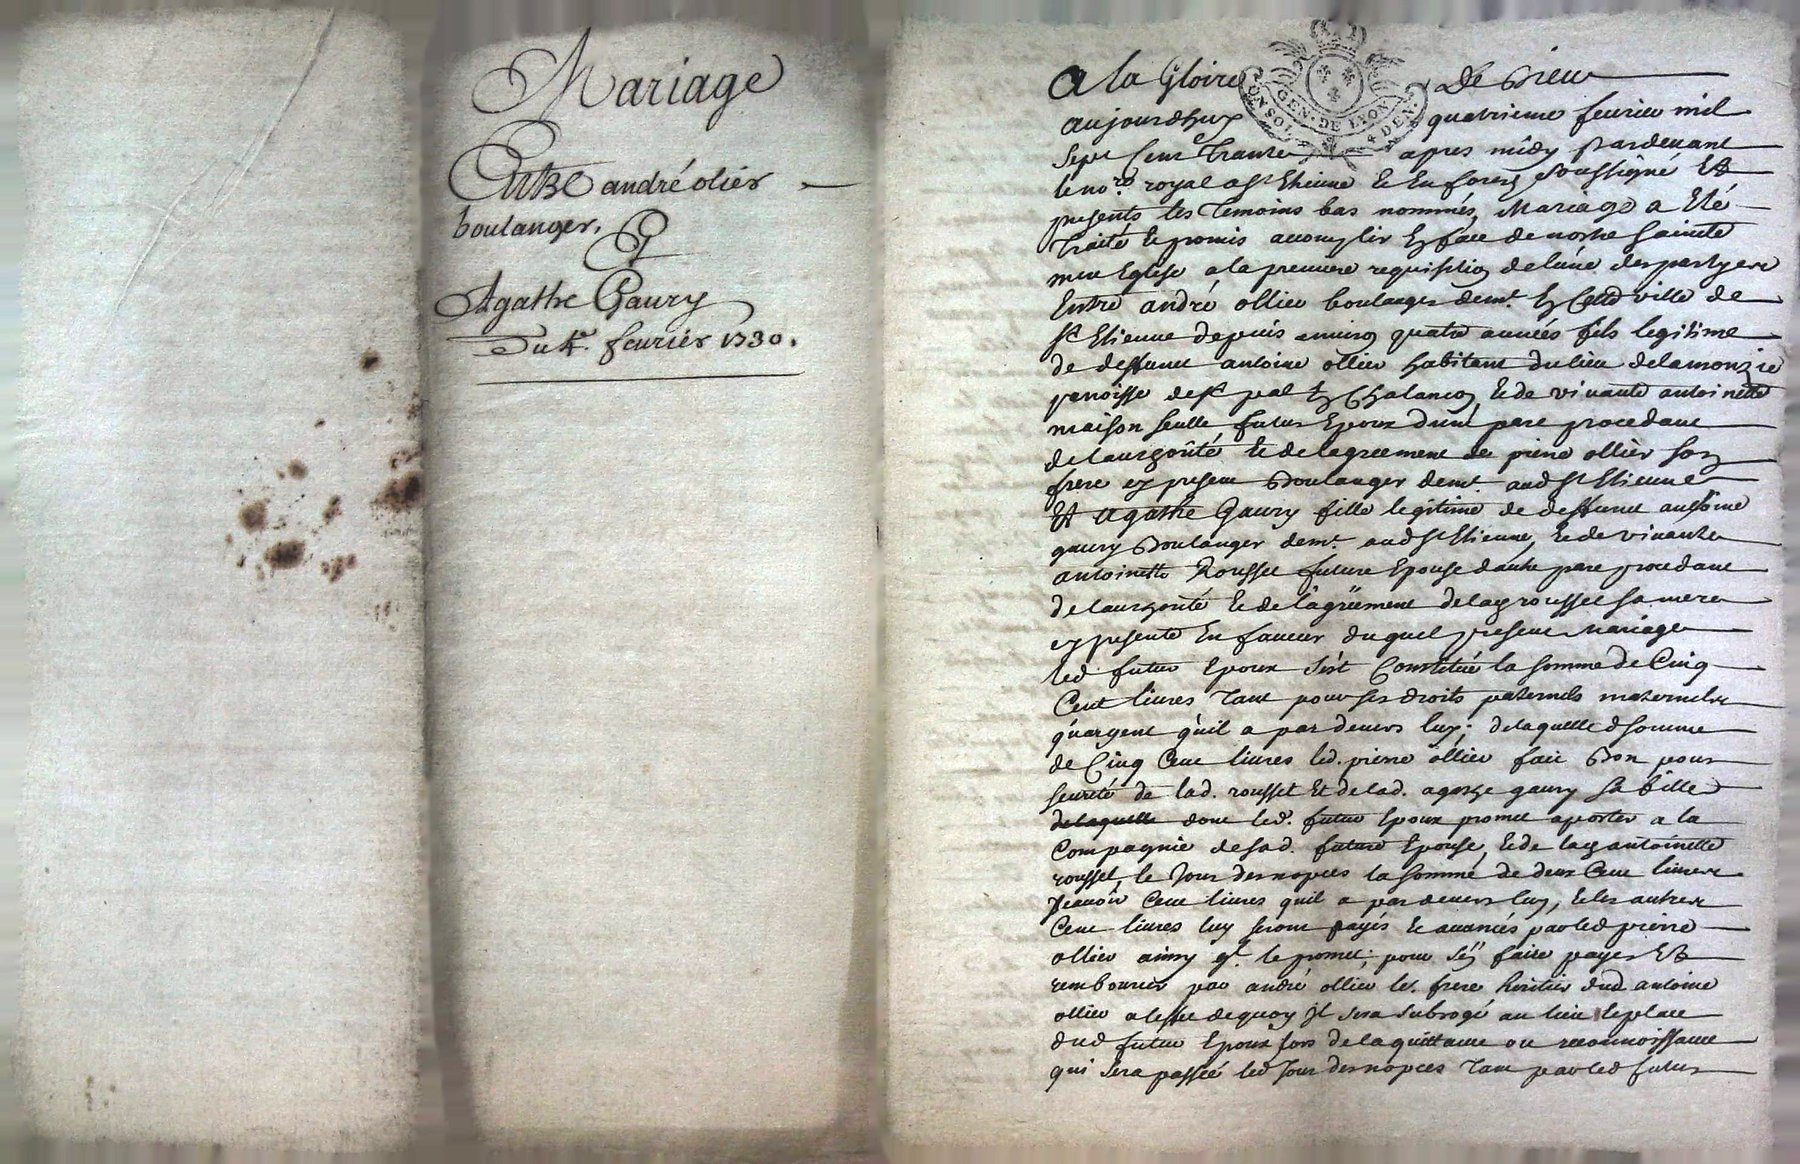 Mariage
Entre andré olier
boulanger, Et
Agathe Gaury
Du 4e. feurier 1730.
A la Gloire De Dieu
GEN. DE LYON
aujourdhuy quatrieme feurier mil
sept Cent Trante apres midy pardeuant
le nore. royal a St Etienne Et En forez soussigné Et
presents les Temoins bas nommés, Mariage a Eté
Traité Et promis accomplir En face de nostre sainte
mere Eglise a la premiere requisition de lune des partyes
Entre andré ollier boulanger demt. En Cette ville de
St Etienne depuis enuiron quatre années fils legitime
de deffunct antoine ollier habitant du lieu de lamonzie
parroisse de St pal En Chalancon, Et de viuante antoinette
maison seulle futur Epoux dune part procedant
de lauthorité Et de lagreement de pierre ollier son
frere cy present Boulanger demt. aud St Etienne
Et Agathe Gaury fille legitime de deffunct anthoine
gaury Boulanger demt. aud St Etienne, Et de viuante
antoinette Rousset future Epouse dautre part procedant
de lauthorité Et de lagréement de lad rousset sa mere
cy presente En faueur duquel present Mariage
led futur Epoux sest Constitué la somme de Cinq
Cent liures Tant pour ses droits paternels maternels
quargent quil a par deuers luy; de laquelle somme
de Cinq Cent liures led. pierre ollier fait Don pour
seureté de lad. rousset Et de lad. agathe gaury sa fille
de laquelle dont led. futur Epoux promet aporter a la
Compagnie de sad. future Epouse, Et de lad antoinette
rousset, le Jour des nopces la somme de deux Cent liures
scauoir Cent liures quil a par deuers luy, Et les autres
Cent liures luy seront payés Et auancés par led pierre
ollier ainsy ql. le promet; pour sen faire payer Et
rembourcer par andré ollier frere heritier dud antoine
ollier a leffet de quoy Jl sera subrogé au lieu Et place
dud futur Epoux lors de la quittance ou reconnoissance
qui sera passée led Jour des nopces Tant par led futur